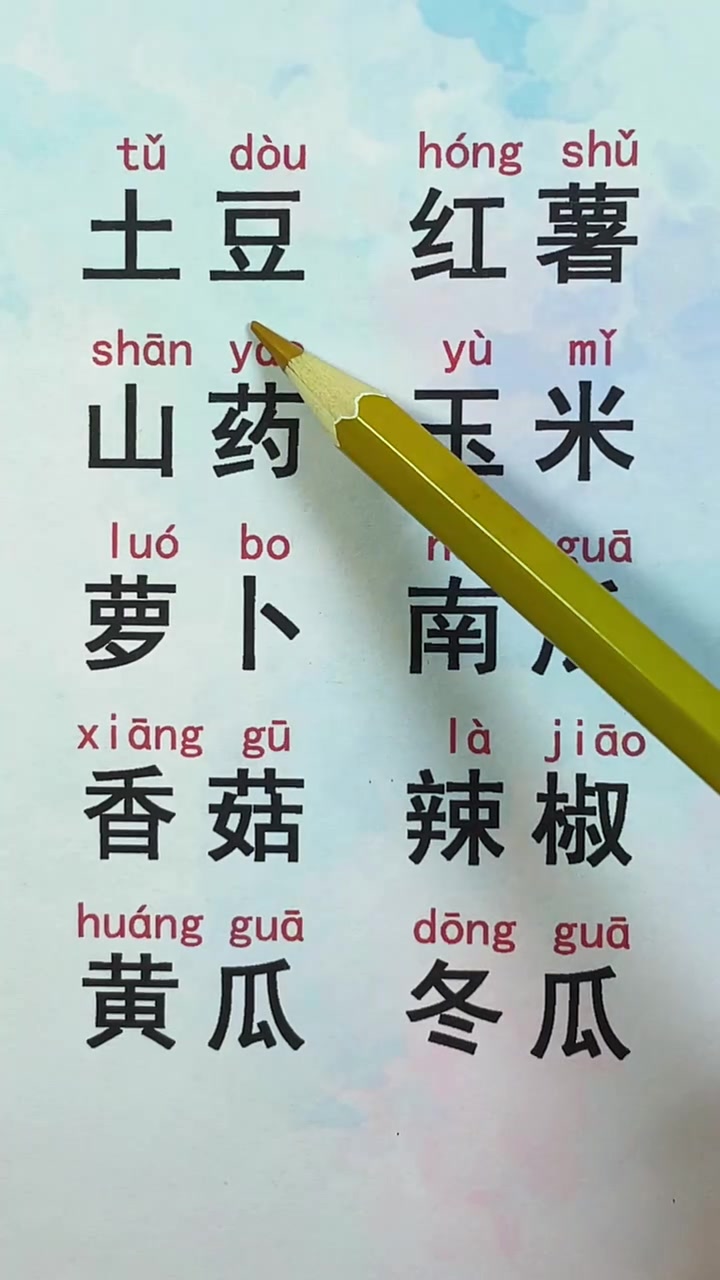 tǔ dòu hóng shǔ
土豆 红薯
shān yù mǐ
山药 玉米
luó bo guā
萝卜 南
xiāng gū là jiāo
香菇 辣椒
huáng guā dōng guā
黄瓜 冬瓜